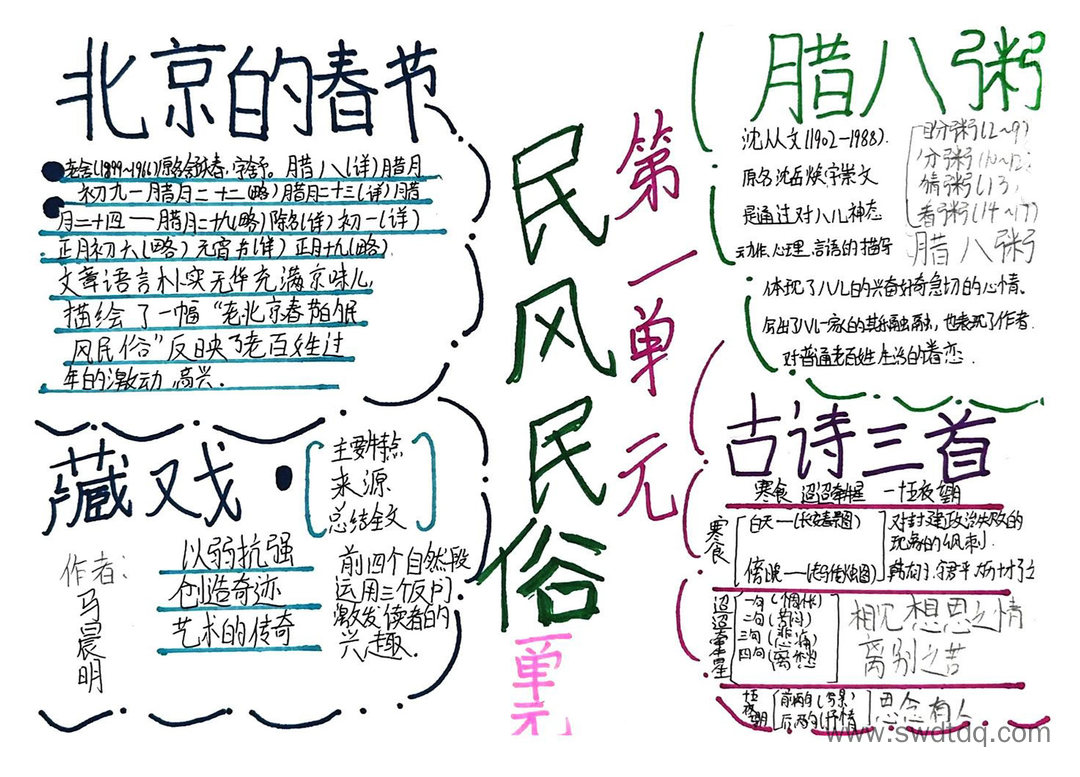 北京的春节
老舍(1899~1966)原名舒庆春,字舍予。腊月八(详)腊月
初九一腊月二十二(略)腊月二十三(详)腊
月二十四一腊月二十九(略)除夕(详)初一(详)
正月初六(略)元宵节(详)正月十九(略).
文章语言朴实无华充满京味儿,
描绘了一幅“老北京春节的民
风民俗”反映了老百姓过
年的激动 高兴.
藏戏
主要特点
来源
总结全文
作者:马晨明
以弱抗强
创造奇迹
艺术的传奇
前四个自然段
运用三个反问
激发读者的
兴趣.
民风民俗
单元
第一单元
腊八粥
沈从文(1902—1988).
原名沈岳焕字崇文
是通过对八儿神态
动作、心理、言语的描写
分粥(10~12
猜粥(13)
看粥(14~17)
腊八粥
体现了八儿的兴奋好奇急切的心情。
写出了八儿一家的其乐融融,也表现了作者.
对普通老百姓生活的眷恋.
古诗三首
寒食 迢迢牵牛星 十五夜望月
寒食
白天—(长安春景图)
傍晚—
对封建政治失败的
现象的讽刺.
迢迢牵牛星
一句(惆怅)
二句(苦闷)
三句(悲痛)
四句(离愁)
相见想思之情
离别之苦
前两句(写景)
后两句(抒情)
思念有人
www.swdtdq.com